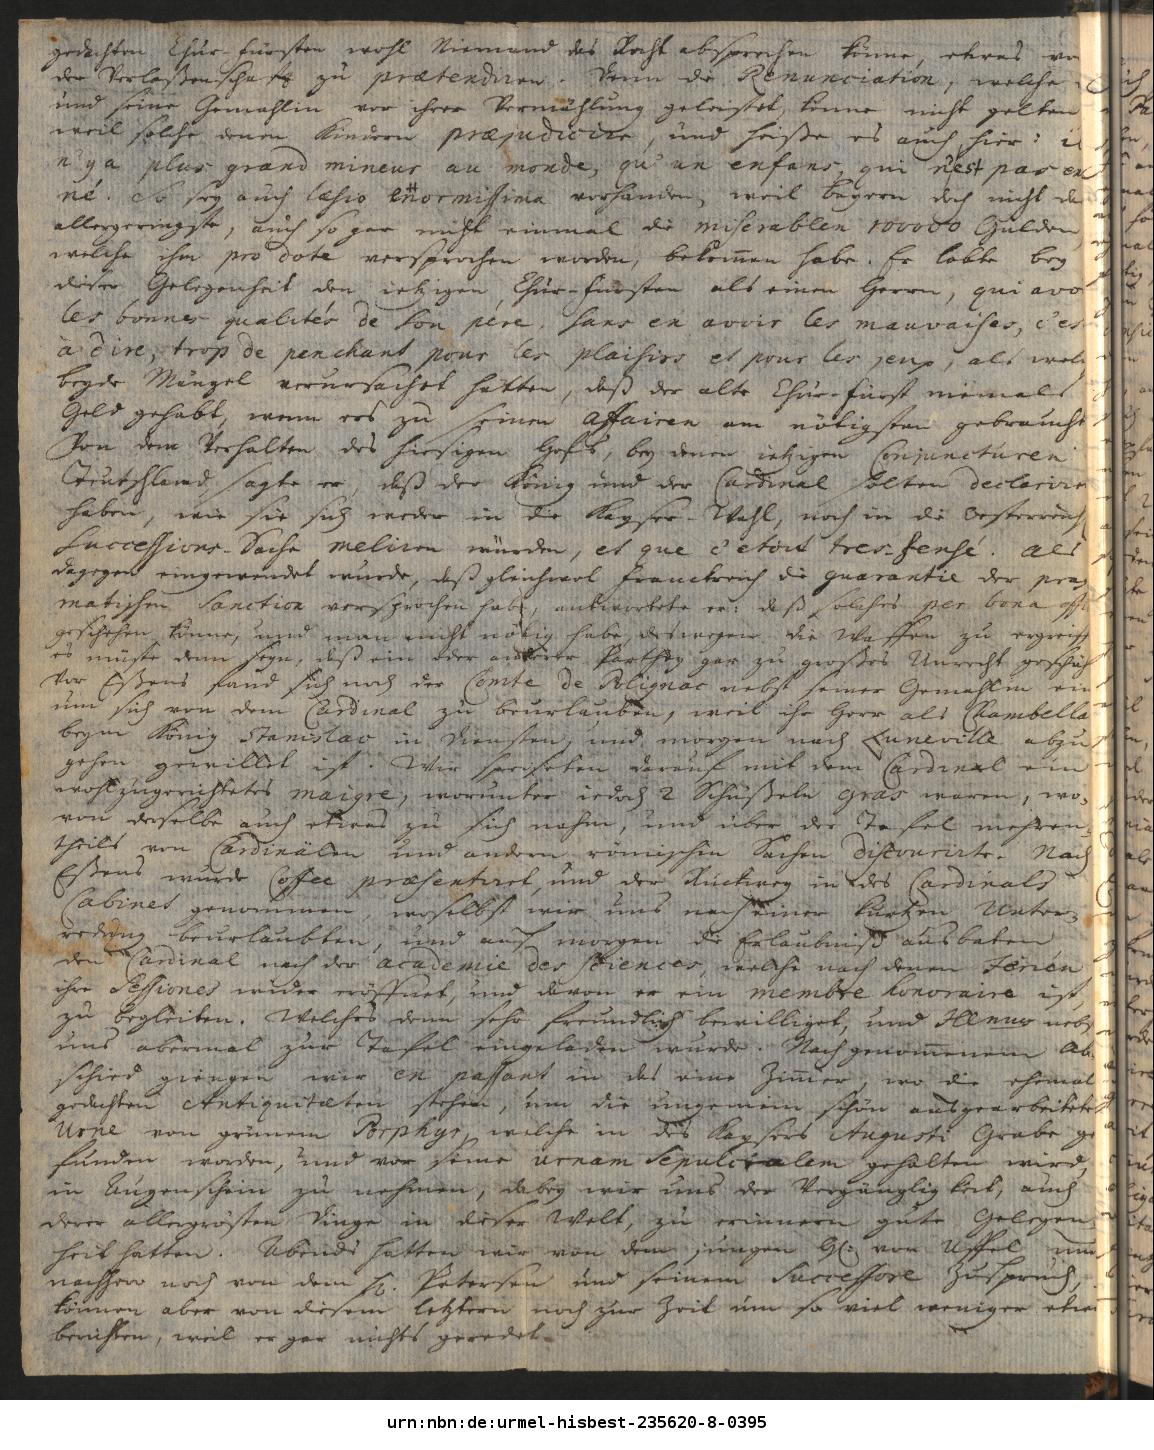 gedachten Chur-Fürsten wohl Niemand das Recht absprechen könne, etwas vo
der Verlaßenschafft zu prætendiren. Denn die Renunciation, welche
und seine Gemahlin vor ihrer Vermählung geleistet, könne nicht gelten
weil solche denen Kindern præjudicire, und heiße es auch hier: il
n'ya plus grand mineur au monde, qu'un enfans, qui n'est pas en
né. So sey auch læsio enormissima vorhanden, weil doch nicht da
allergeringste, auch so gar nicht einmal die miserablen 100000 Gulden
welche ihm pro dote versprochen worden, bekom̄en habe. Er lobte bey
dieser Gelegenheit den ietzigen Chur-Fürsten als einen Herrn, qui avo
les bonnes qualités de son pere, sans en avoir les mauvaises, c'es
à dire, trop de penchant pour les plaisirs et pour les jeux, als welc
beyde Mängel verursachet hätten, daß der alte Chur-Fürst niemals
Geld gehabt, wenn ers zu seinen affairen am nötigsten gebraucht
Von dem Verhalten des hiesigen Hofs, bey denen ietzigen Conjuncturen
Teutschland, sagte er, daß der König und der Cardinal solten declarire
haben, wie sie sich weder in die Kayser-Wahl, noch in die Oesterreich
Successions-Sache meliren würden, et que c'etoit tres-sensé. Als
dagegen eingewendet wurde, daß gleichwol Franckreich die guarantie der prag
matischen Sanction versprochen habe, antwortete er: daß solches per bona offi
geschehen könne, und man nicht nötig habe, deswegen die Waffen zu ergreiff
es müste denn seyn, daß ein oder anderer Parthey gar zu großes Unrecht geschäh
Vor Eßens fand sich noch der Comte de Polignac nebst seiner Gemahlin ein
um sich von dem Cardinal zu beurlauben, weil ihr Herr als Chambella
beym König Stanislao in Diensten, und morgen nach Luneville abzu
gehen gewillet ist. Wir speiseten darauf mit dem Cardinal ein
wohlzugerichtetes maigre, worunter iedoch 2 Schüßeln gras waren, wo-
von derselbe auch etwas zu sich nahm, und über der Tafel mehren-
theils von Cardinälen und andern römischen Sachen discourirte. Nach
Eßens wurde Coffee præsentiret, und der Rückweg in des Cardinals
Cabinet genommen, woselbst wir uns nach einer kurtzen Unter-
redung beurlaubten, und auf morgen die Erlaubniß ausbaten
den Cardinal nach der academie des sciences, welche nach denen Ferien
ihre Sessiones wider eröffnet, und davon er ein membre honoraire ist,
zu begleiten. Welches denn sehr freundlich bewilliget, und nebst
uns abermal zur Tafel eingeladen wurde. Nach genom̄enem Ab-
schied giengen wir en passant in das eine Zim̄er, wo die ehemal
gedachten Antiquitæten stehen, um die ungemein schön ausgearbeitete
Urne von grünem Porphyr, welche in des Kaysers Augusti Grabe ge
funden worden, und vor seine urnam sepulcralem gehalten wird,
in Augenschein zu nehmen, dabey wir uns der Vergänglichkeit, auch
derer allergrösten Dinge in dieser Welt, zu erinnern gute Gelegen-
heit hatten. Abends hatten wir von dem jungen H. von Uffel und
nachhero noch von dem H. Petersen und seinem Successore Zuspruch,
können aber von diesem letztern noch zur Zeit um so viel weniger etwa
berichten, weil er gar nichts geredet.
urn:nbn:de:urmel-hisbest-235620-8-0395